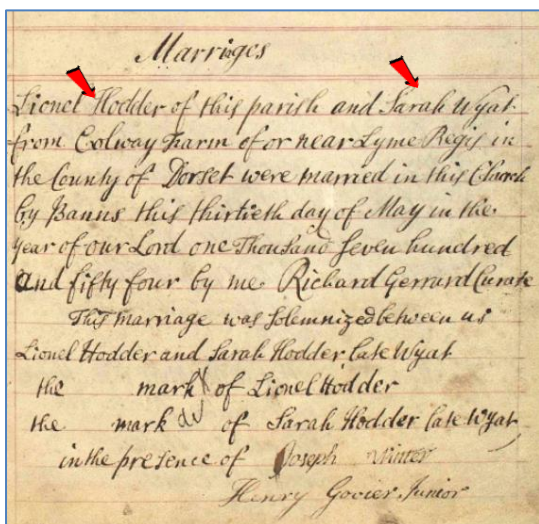 Marriages
Lionel Hodder of this parish and Sarah Wyat
from Colway Farm of or near Lyme Regis in
the County of Dorset were married in this Church
by Banns this thirtieth day of May in the
year of our Lord one Thousand Seven hundred
and fifty four by me Richard Gerrard Curate
This marriage was Solemnized between us
Lionel Hodder and Sarah Hodder late Wyat
the mark X of Lionel Hodder
the mark of Sarah Hodder late Wyat
in the presence of Joseph Winter
Henry Govier Junior